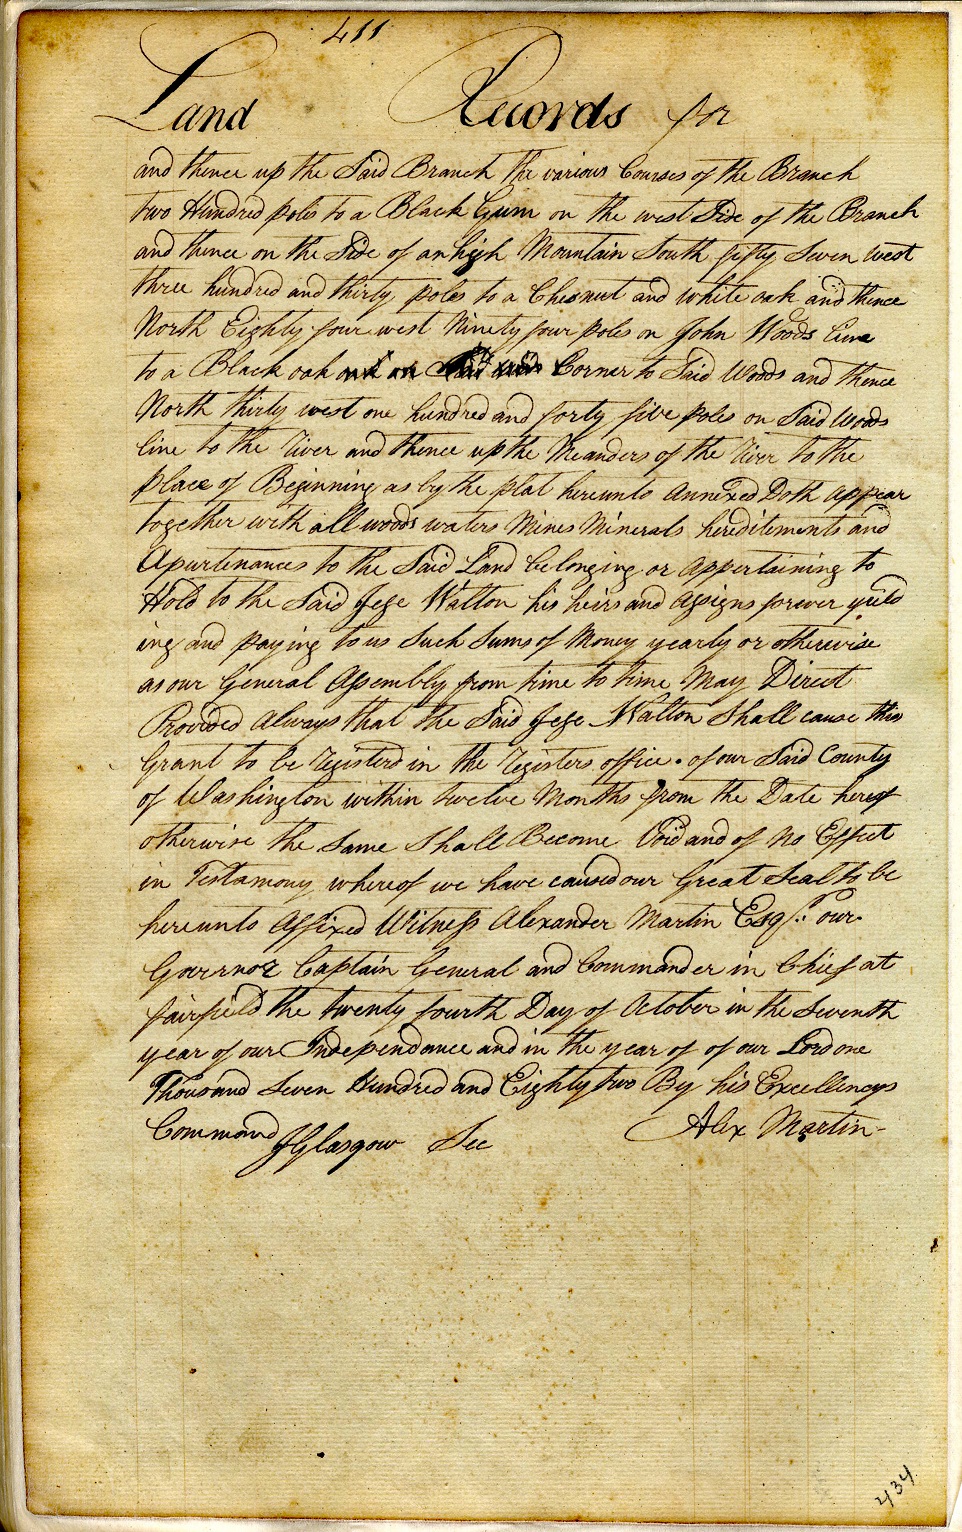 411
Land Records for
and thence up the Said Branch the various Courses of the Branch
two Hundred poles to a Black Gum on the west Side of the Branch
and thence on the Side of an high Mountain South fifty Seven west
three hundred and thirty poles to a Chesnut and white oak and thence
North Eighty four west Ninety four poles on John Woods Line
to a Black oak Corner to Said Woods and thence
North thirty west one hundred and forty five poles on Said Woods
line to the River and thence up the Meanders of the River to the
place of Beginning as by the plat hereunto Annexed Doth appear
together with all woods waters Mines Minerals hereditements and
Apurtenances to the Said Land belonging or appertaining to
Hold to the Said Jesse Walton his heirs and assigns forever yeild
ing and paying to us Such Sums of Money yearly or otherwise
as our General Assembly from time to time May Direct
Provided Always that the Said Jesse Walton Shall cause this
Grant to be Registerd in the Registers office . of our Said County
of Washington within twelve Months from the Date hereof
otherwise the Same Shall Become Void and of No Effect
in Testamony whereof we have caused our Great Seal to be
hereunto Affixed Witness Alexander Martin Esqr. our
Governor Captain General and Commander in Chief at
fairfield the twenty fourth Day of October in the Seventh
year of our Independance and in the year of of our Lord one
Thousand Seven Hundred and Eighty two By his Excellencys
Command Alex Martin
JGlasgow Sec
434